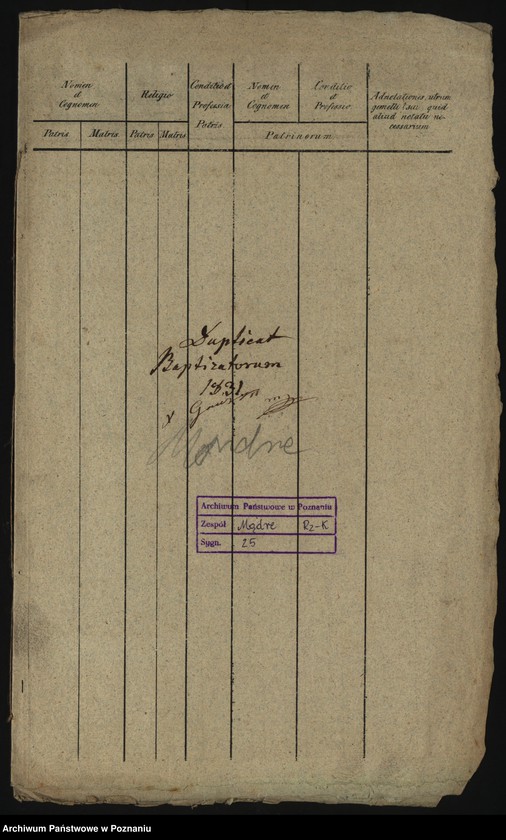 Nomen
et
Cognomen
Religio
Conditio et
Professio
Patris
Nomen
et
Cognomen
Conditio
et
Professio
Adnotationis, utrum
gemelli
quid
aliud notatu ne-
cessarium
Patris
Matris
Patris
Matris
Patrinorum
Duplicat
Baptizatorum
1831
Mondre
Archiwum Państwowe w Poznaniu
Zespół Mądre Rz-K
Sygn. 25
Archiwum Państwowe w Poznaniu